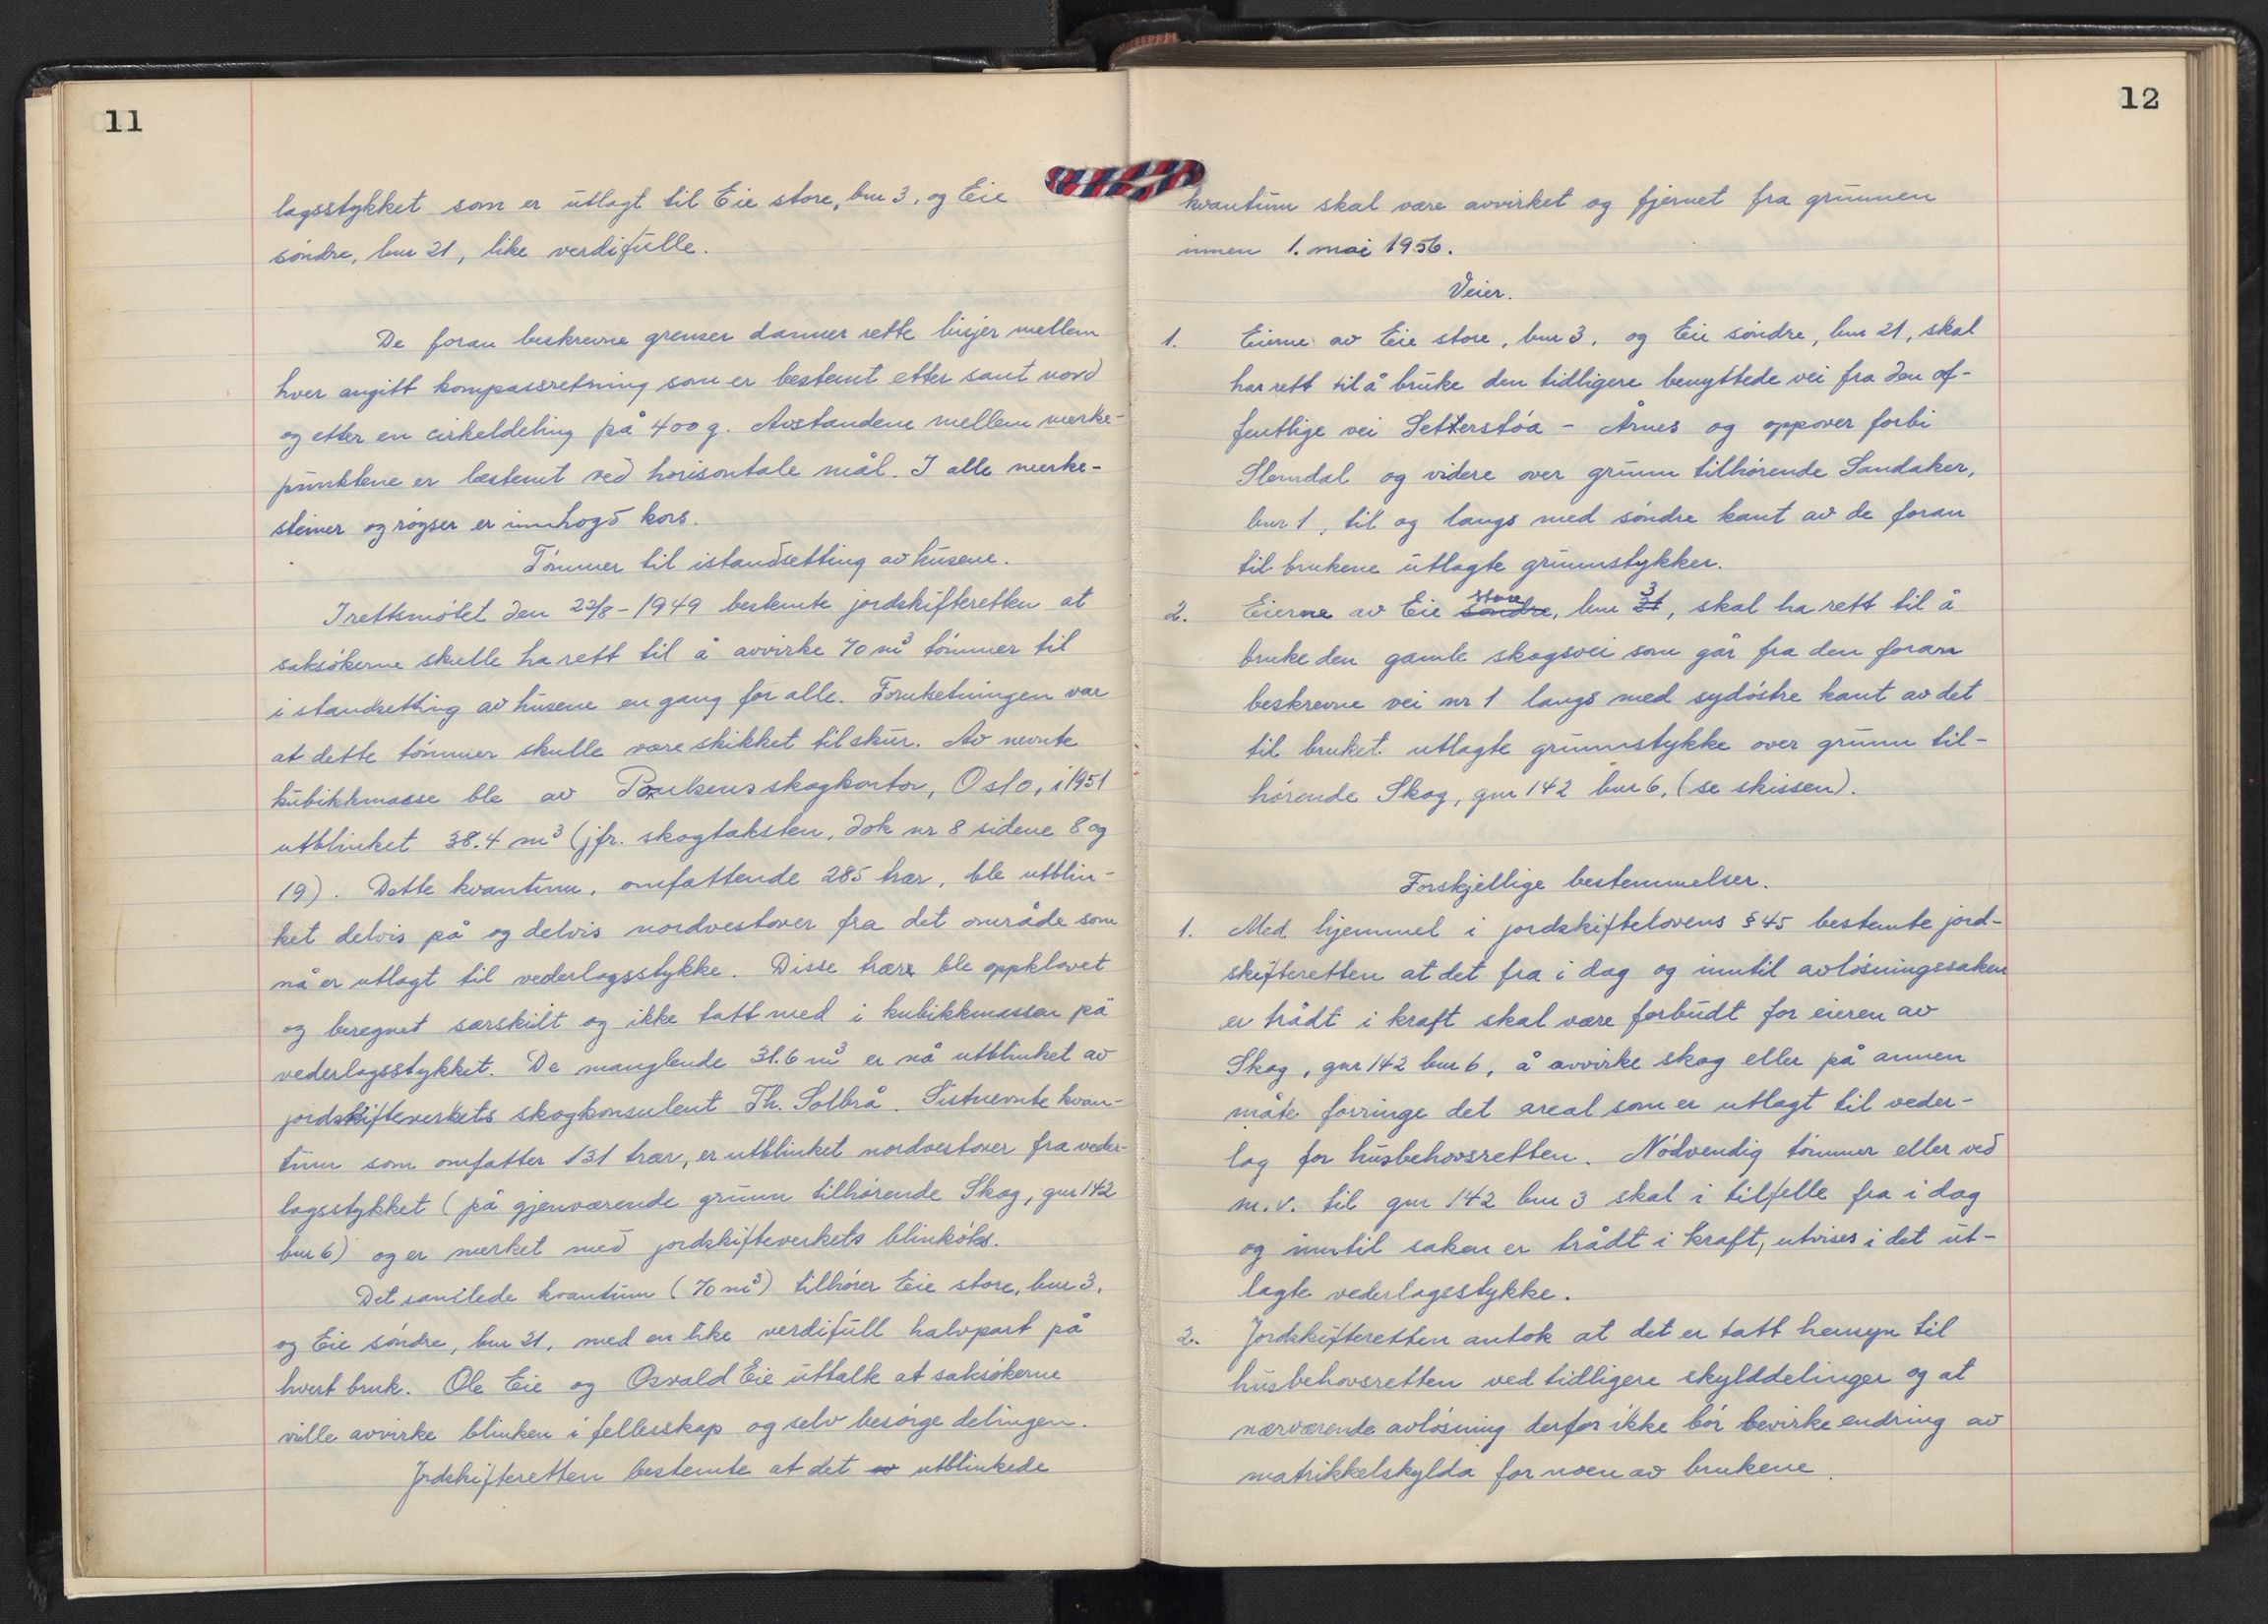 11
lagsstykket som er utlagt til Eie store, bnr 3, og Eie
søndre, bnr 21, like verdifulle.
De foran beskrevne grenser danner rette linjer mellem
hver angitt kompassretning som er bestemt etter sant nord
og etter en cirkeldeling på 400 g. Avstandene mellem merke-
punktene er bestemt ved horisontale mål. I alle merke-
steiner og røyser er innhogd kors.
Tømmer til istandsetting av husene.
I rettsmøtet den 22/8 - 1949 bestemte jordskifteretten at
saksøkerne skulle ha rett til å avvirke 70 m³ tømmer til
istandsetting av husene en gang for alle. Forutsetningen var
at dette tømmer skulle være skikket til skur. Av nevnte
kubikkmasse ble av Paulsens skogkontor, Oslo, i 1951
utblinket 38.4 m³ (jfr. skogtaksten, dok nr 8 sidene 8 og
19). Dette kvantum, omfattende 285 trær, ble utblin-
ket delvis på og delvis nordvestover fra det område som
nå er utlagt til vederlagsstykke. Disse trær ble oppklavet
og beregnet særskilt og ikke tatt med i kubikkmassen på
vederlagsstykket. De manglende 31.6 m³ er nå utblinket av
jordskifteverkets skogkonsulent Th. Solbrå. Sistnevnte kvan-
tum som omfatter 131 trær, er utblinket nordvestover fra veder-
lagsstykket (på gjenværende grunn tilhørende Skog, gnr 142
bnr 6) og er merket med jordskifteverkets blinkøks.
Det samlede kvantum (70 m³) tilhører Eie store, bnr 3,
og Eie søndre, bnr 21, med en like verdifull halvpart på
hvert bruk. Ole Eie og Osvald Eie uttalte at saksøkerne
ville avvirke blinken i fellesskap og selv besørge delingen.
Jordskifteretten bestemte at det av utblinkede
12
kvantum skal være avvirket og fjernet fra grunnen
innen 1. mai 1956.
Veier.
1. Eierne av Eie store, bnr 3, og Eie søndre, bnr 21, skal
har rett til å bruke den tidligere benyttede vei fra den of-
fentlige vei Setterstøa - Årnes og oppover forbi
Slemdal og videre over grunn tilhørende Sandaker,
bnr 1, til og langs med søndre kant av de foran
til brukene utlagte grunnstykker.
2. Eierne av Eie søndre store, bnr 21 3, skal ha rett til å
bruke den gamle skogsvei som går fra den foran
beskrevne vei nr 1 langs med sydøstre kant av det
til bruket utlagte grunnstykke over grunn til-
hørende Skog, gnr 142 bnr 6, (se skissen).
Forskjellige bestemmelser.
1. Med hjemmel i jordskiftelovens § 45 bestemte jord-
skifteretten at det fra i dag og inntil avløsningssaken
er trådt i kraft skal være forbudt for eieren av
Skog, gnr 142 bnr 6, å avvirke skog eller på annen
måte forringe det areal som er utlagt til veder-
lag for husbehovsretten. Nødvendig tømmer eller ved
m.v. til gnr 142 bnr 3 skal i tilfelle fra i dag
og inntil saken er trådt i kraft, utvises i det ut-
lagte vederlagsstykke.
2. Jordskifteretten antok at det er tatt hensyn til
husbehovsretten ved tidligere skylddelinger og at
nærværende avløsning derfor ikke bør bevirke endring av
matrikkelskylda for noen av brukene.